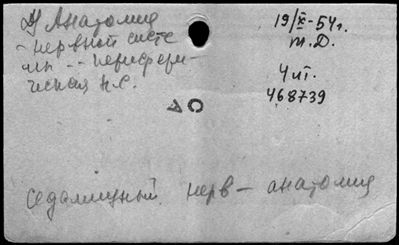 Анатомия
- нервной систе
мы -- перифери-
ческая н.С.
19/X-54г.
т.Д.
4 иг.
468739
седалищный нерв - анатомия